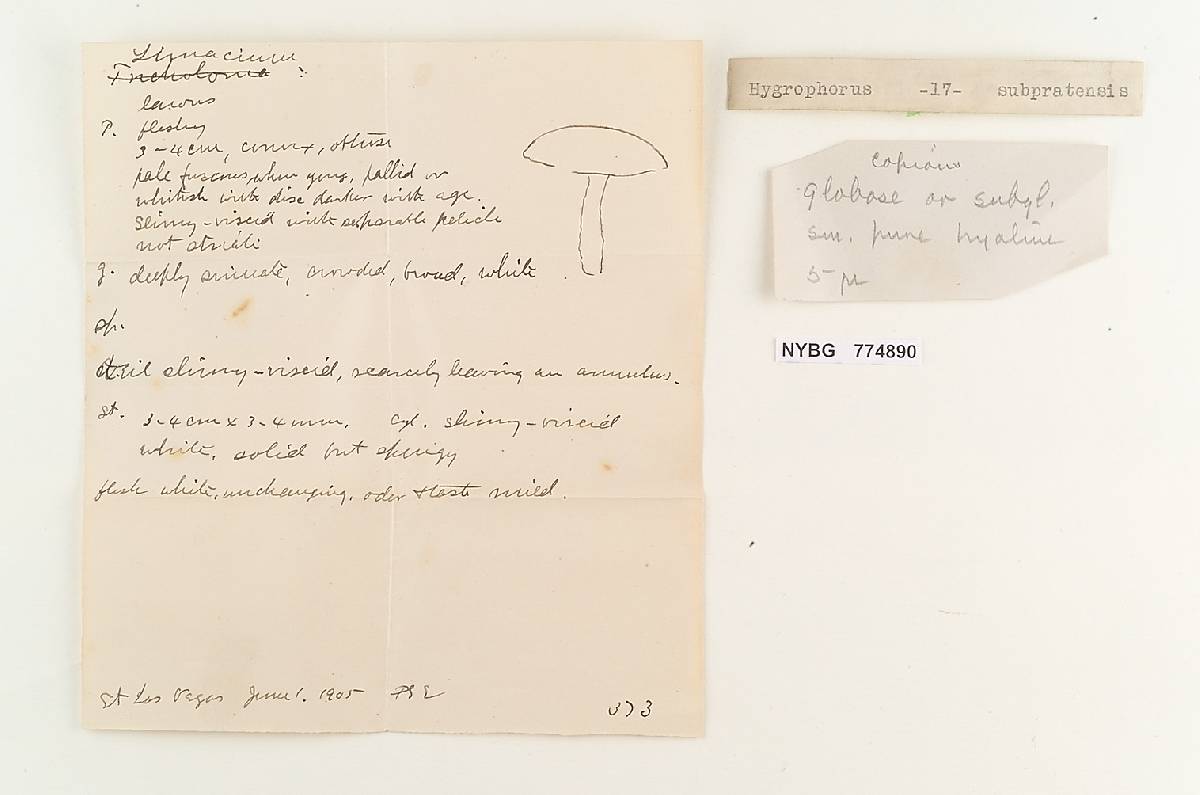 Limacium
Tricholoma :
P. fleshy
3-4 cm, convex, obtuse
pale fuscous, when young, pallid or
whitish with disc darker with age.
Slimy-viscid with separable pelicle
not striate
g. deeply sinuate, crowded, broad, white
sp.
Veil slimy-viscid, scarcely leaving an annulus.
st. 3-4 cm x 3-4 mm. Cyl. slimy-viscid
white, solid but spongy
flesh white, unchanging, odor & taste mild.
St Las Vegas June 1. 1905 FSE
373
Hygrophorus -17- subpratensis
copious
Globose or subgl.
sm. pure hyaline
5 µ
NYBG 774890